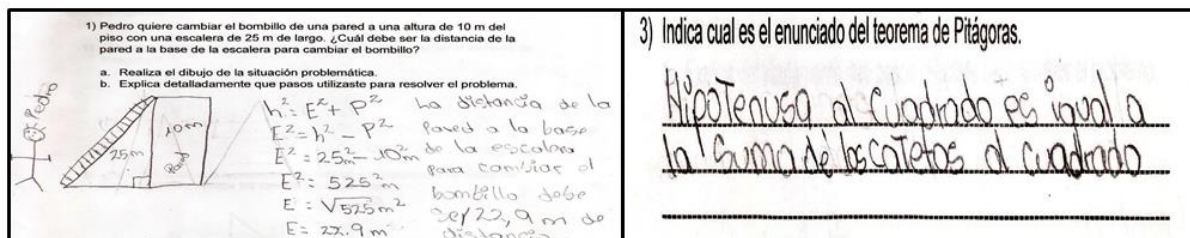 1) Pedro quiere cambiar el bombillo de una pared a una altura de 10 m del
piso con una escalera de 25 m de largo. ¿Cuál debe ser la distancia de la
pared a la base de la escalera para cambiar el bombillo?
a. Realiza el dibujo de la situación problemática.
b. Explica detalladamente que pasos utilizaste para resolver el problema.
Pedro
25m
10m
Pared
h² = E² + P²
E² = h² - P²
E² = 25²m - 10²m
E² = 525²m
E = √525m²
E = 22.9 m
La distancia de la
Pared a la base
de la escalera
para cambiar el
bombillo debe
ser 22,9 m de
distancia
3) Indica cual es el enunciado del teorema de Pitágoras.
HipoTenusa al Cuadrado es igual a
la Suma de los CaTeTos al Cuadrado